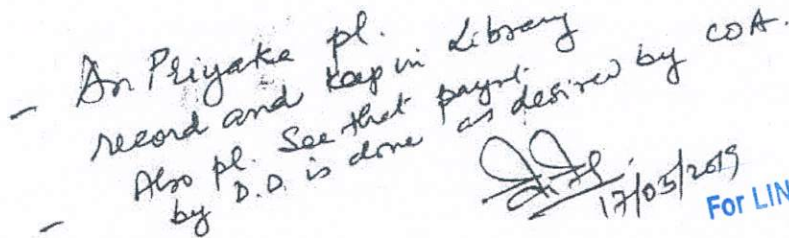 - Ar. Priyaka pl.
record and keep in Library
- Also pl. See that paymt.
by D.D. is done as desired by COA.
17/05/2019
For LIN